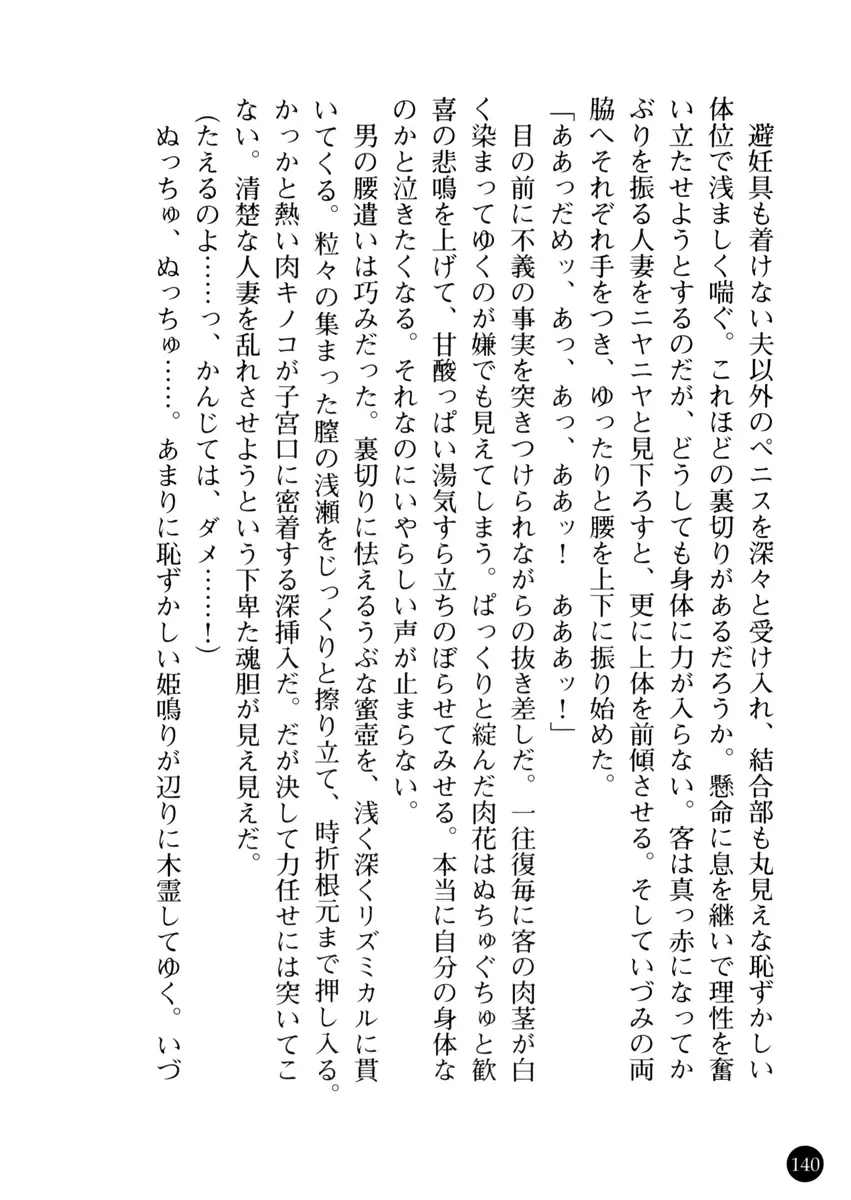 避妊具も着けない夫以外のペニスを深々と受け入れ、結合部も丸見えな恥ずかしい
体位で浅ましく喘ぐ。これほどの裏切りがあるだろうか。懸命に息を継いで理性を奮
い立たせようとするのだが、どうしても身体に力が入らない。客は真っ赤になってか
ぶりを振る人妻をニヤニヤと見下ろすと、更に上体を前傾させる。そしていづみの両
脇へそれぞれ手をつき、ゆったりと腰を上下に振り始めた。
「ああっだめッ、あっ、あっ、ああッ！　あああッ！」
目の前に不義の事実を突きつけられながらの抜き差しだ。一往復毎に客の肉茎が白
く染まってゆくのが嫌でも見えてしまう。ぱっくりと綻んだ肉花はぬちゅぐちゅと歓
喜の悲鳴を上げて、甘酸っぱい湯気すら立ちのぼらせてみせる。本当に自分の身体な
のかと泣きたくなる。それなのにいやらしい声が止まらない。
男の腰遣いは巧みだった。裏切りに怯えるうぶな蜜壺を、浅く深くリズミカルに貫
いてくる。粒々の集まった膣の浅瀬をじっくりと擦り立て、時折根元まで押し入る。
かっかと熱い肉キノコが子宮口に密着する深挿入だ。だが決して力任せには突いてこ
ない。清楚な人妻を乱れさせようという下卑た魂胆が見え見えだ。
（たえるのよ……っ、かんじては、ダメ……！）
ぬっちゅ、ぬっちゅ……。あまりに恥ずかしい姫鳴りが辺りに木霊してゆく。いづ
140